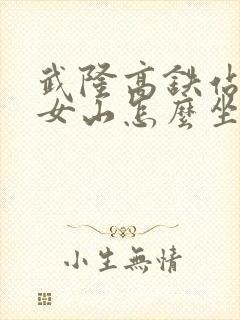 武隆高鉄佔
女山怎麼坐
小生無情